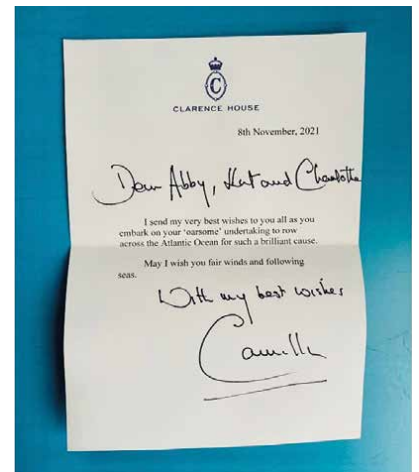 C
CLARENCE HOUSE
8th November, 2021
Dear Abby, Kat and Charlotte
I send my very best wishes to you all as you
embark on your 'oarsome' undertaking to row
across the Atlantic Ocean for such a brilliant cause.
May I wish you fair winds and following
seas.
With my best wishes
Camilla